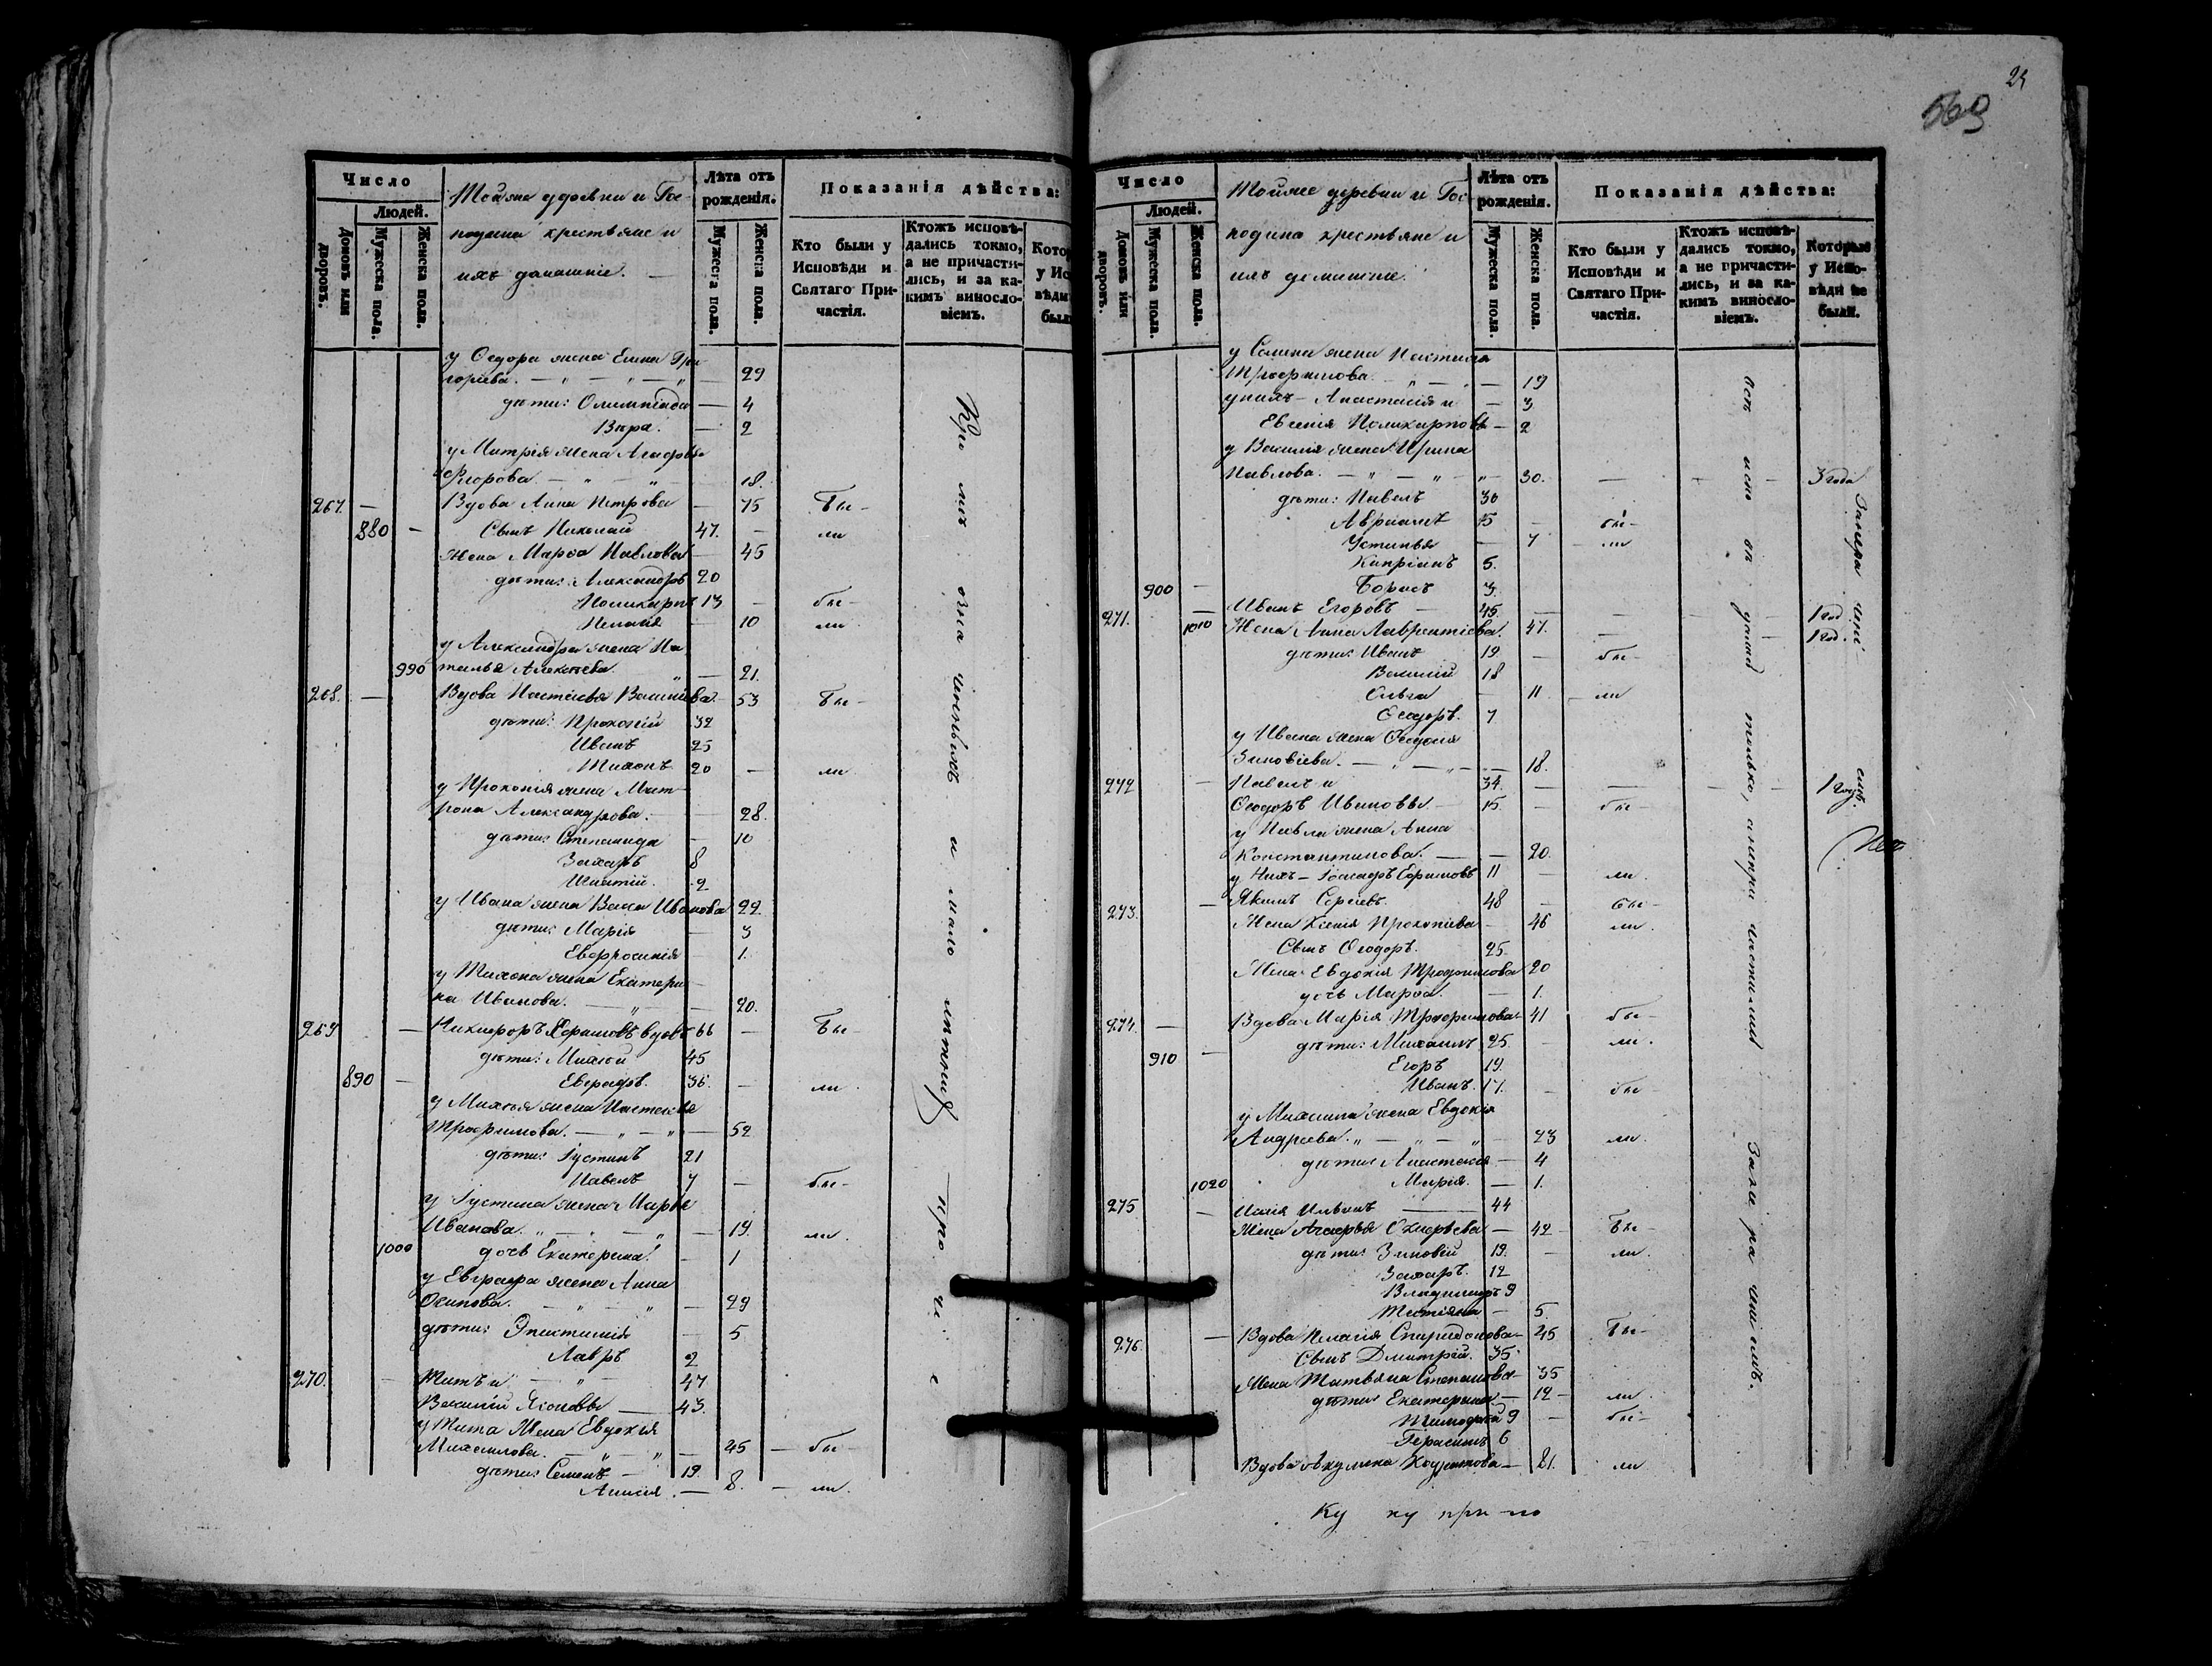 Число
Людей.
Домовъ или дворовъ.
Мужеска пола.
Женска пола.
Тойже деревни и Гос-
подина крестьяне и
ихъ домашніе.
Лѣта отъ рожденія.
Мужеска пола.
Женска пола.
Показанія дѣйства:
Кто были у Исповѣди и Святаго Причастія.
Ктожъ исповѣ-
дались токмо,
а не причасти-
лись, и за ка-
кимъ винносло-
віемъ.
у Ѳедора жена Елена Гри
горьева. 29
дѣти: Олимпіада 4
Вѣра. 2
у Митрія жена Агафья
Егорова 18.
267. Вдова Анна Петрова 75 Бы-
880 Сынъ Николай 47. ли
Жена Марѳа Павлова 45
дѣти: Александръ 20
Поликарпъ 13 бы-
Пелагія 10 ли
у Александра жена На
990 талья Алексѣева 21.
268. Вдова Настасья Васильева 53 Бы-
дѣти: Прокопій 32
Иванъ 25
Тихонъ 20 ли
у Прокопія жена Мат-
рона Александрова. 28.
дѣти: Степанида 10
Захаръ 8
Игнатій. 2
у Ивана жена Васса Иванова 22.
дѣти: Марія 3
Евфросинія 1.
у Тихона жена Екатери
на Иванова. 20.
269 Никифоръ Ефимовъ вдовъ 66 Бы-
дѣти: Михей 45
890 Евграфъ. 36. ли
у Михея жена Настасья
Трофимова. 52
дѣти: Іустинъ 21
Павелъ 7 бы-
у Іустина жена Марья
Иванова. 19. ли.
1000 дочь Екатерина 1
у Евграфа жена Анна
Осипова. 29
дѣти: Эпистимія 5
Лавръ 2
270. Титъ и 47
Василій Яковлевы 43.
у Тита Жена Евдокія
Михайлова. 45 бы-
дѣти: Семенъ 19.
Анисія. 8. ли.
24
569
Число
Людей.
Домовъ или дворовъ.
Мужеска пола.
Женска пола.
Тойже деревни и Гос-
подина крестьяне и
ихъ домашніе.
Лѣта отъ рожденія.
Мужеска пола.
Женска пола.
Показанія дѣйства:
Кто были у Исповѣди и Святаго Причастія.
Ктожъ исповѣ-
дались токмо,
а не причасти-
лись, и за ка-
кимъ винносло-
віемъ.
Которые у Испо-
вѣди не были.
у Семена жена Настасья
Трофимова. 19
у нихъ Анастасія и 3
Евгенія Поликарповы 2
у Василія жена Ирина
Павлова. 30. 3 года
дѣти: Павелъ 30
Авраамъ 15 бы-
Устинья 7 ли
Кипріанъ 5.
900 Борисъ 3.
271. Иванъ Егоровъ 45. 1 год.
1010 Жена Анна Лаврентіева. 47. 1 год.
дѣти: Иванъ 19 бы-
Василій 18
Ольга 11 ли
Ѳеодоръ. 7
у Ивана жена Ѳедосія
Зиновіева. 18.
272 Павелъ и 34. 1 год.
Ѳеодоръ Ивановы 15. бы-
у Павла жена Анна
Константинова. 20.
у Нихъ Ефимовъ 11 ли.
273. Якимъ Сергіевъ. 48 бы-
Жена Ксенія Прокопіева 46 ли.
Сынъ Ѳеодоръ. 25.
Жена Евдокія Трофимова 20
дочь Марѳа. 1.
274. Вдова Марія Трофимова 41 бы-
дѣти: Михаилъ 25. ли.
910 Егоръ 19.
Иванъ. 17. бы
у Михаила жена Евдокія
Андреева. 23 ли.
дѣти: Анастасія 4
1020 Марія. 1.
275 Илія Ильинъ 44
Жена Агафья 42 Бы-
дѣти: Зиновій 19. ли.
Захаръ. 12
Владимиръ 9
Татіана 5
276. Вдова Пелагія Спиридонова 45 Бы-
Сынъ Дмитрій. 35
Жена Татьяна Степанова 35
дѣти: Екатерина 12 ли.
Тимофей 9 бы-
Герасимъ 6
Вдова Акулина Кондратова 81. ли